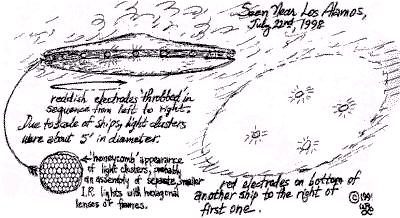 Seen Near Los Alamos,
July 22nd, 1998
reddish electrodes 'throbbed' in
sequence from left to right.
Due to scale of ships, light clusters
were about 5' in diameter.
'honeycomb' appearance
of light clusters, probably
an assembly of separate, smaller
I.R. lights with hexagonal
lenses & frames.
red electrodes on bottom of
another ship to the right of
first one.